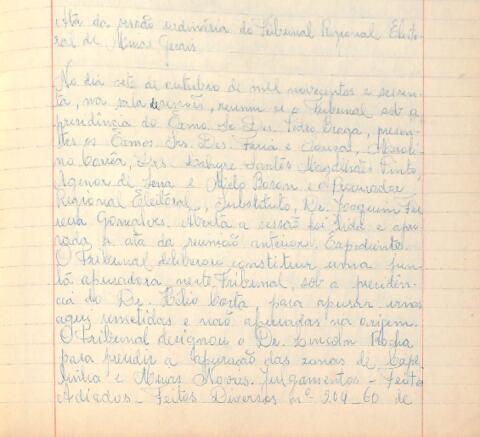 Ata da sessão ordinária do Tribunal Regional Eleito-
ral de Minas Gerais
No dia sete de outubro de mil novecentos e sessen-
ta, na sala de sessões, reuniu-se o Tribunal sob a
presidência do Exmo. Sr. Des. Pedro Braga, presen-
tes os Exmos. Srs. Des. Faria e Souza,
Corrêa, Srs. Santos Magalhães Pinto,
Agenor de Sena e Mello Boson e o Procurador
Regional Eleitoral, Substituto, Dr. Joaquim Fer-
reira Gonçalves. Aberta a sessão foi lida e apro-
vada a ata da reunião anterior. Expediente.
O Tribunal deliberou constituir uma jun-
ta apuradora, neste Tribunal, sob a presidên-
cia do Dr. Hélio Costa, para apurar urnas
aqui remetidas e não apuradas na origem.
O Tribunal designou o Dr. Lincoln Rocha
para presidir à apuração das zonas de Cape-
linha e Minas Novas. Julgamentos - Feitos
Adiados - Feitos Diversos nº 204-60 de